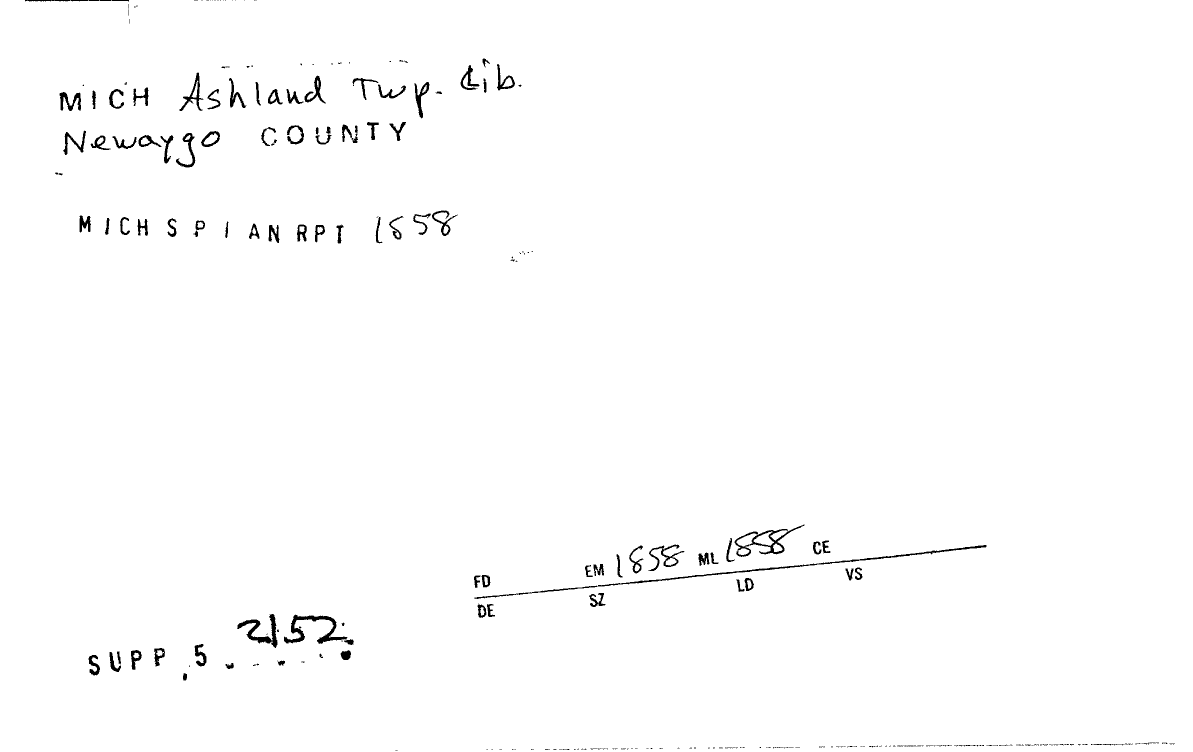 MICH Ashland Twp. Lib.
Newaygo COUNTY
MICH S P I AN RPT 1858
FD EM 1858 ML 1858 CE
DE SZ LD VS
SUPP, 5 2152